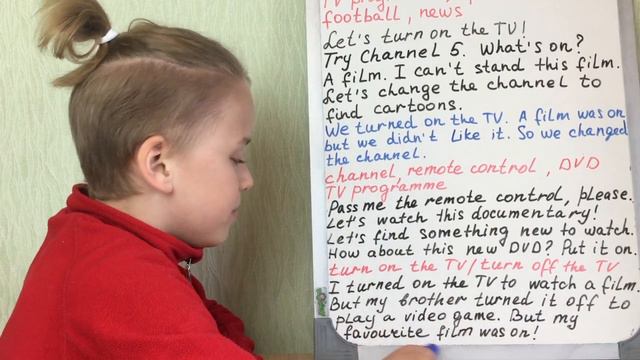 football, news
Let's turn on the TV!
Try Channel 5. What's on?
A film. I can't stand this film.
Let's change the channel to
find cartoons.
We turned on the TV. A film was on
but we didn't like it. So we changed
the channel.
channel, remote control, DVD
TV programme
Pass me the remote control, please.
Let's watch this documentary!
Let's find something new to watch.
How about this new DVD? Put it on.
turn on the TV/turn off the TV
I turned on the TV to watch a film.
But my brother turned it off to
play a video game. But my
favourite film was on!